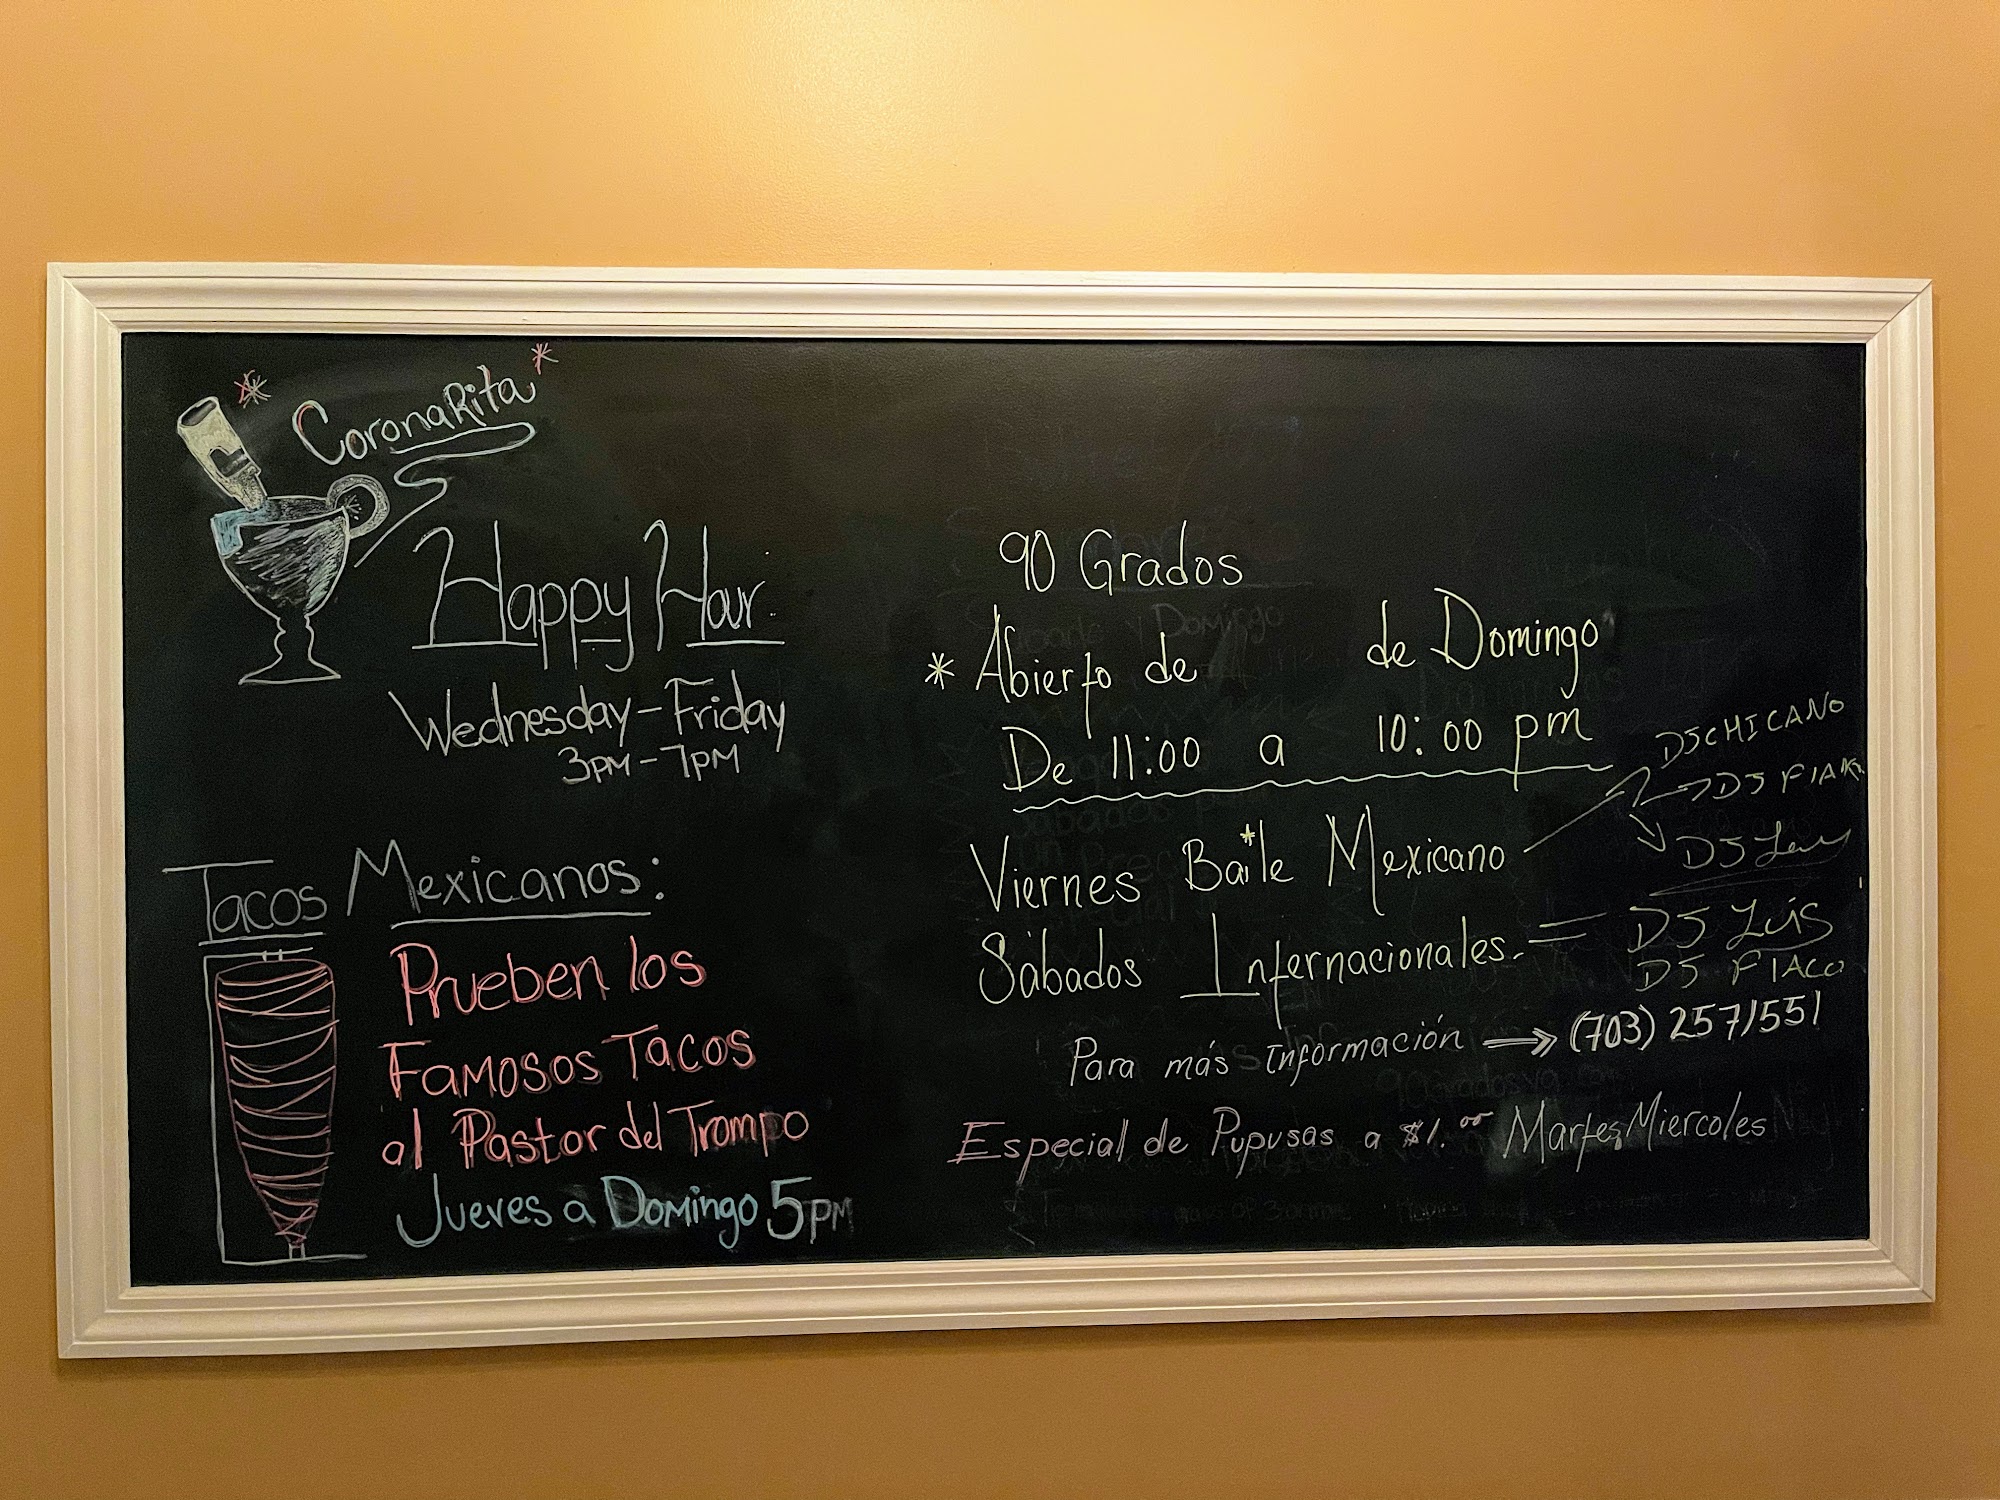 CoronaRita
Happy Hour
Wednesday - Friday
3PM - 7PM
Tacos Mexicanos:
Prueben los
Famosos Tacos
al Pastor del Trompo
Jueves a Domingo 5PM
90 Grados
* Abierto de de Domingo
De 11:00 a 10:00 pm
Viernes Baile Mexicano
DJ CHICANO
DJ FIAK
DJ
Sábados Internacionales. =
DJ Luis
DJ FIACO
Para más Información → (703) 2571551
Especial de Pupusas a $1.00 Martes, Miercoles